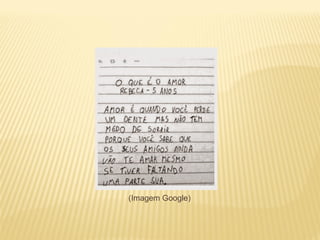 O QUE É O AMOR
REBECA - 5 ANOS
AMOR É QUANDO VOCÊ PERDE
UM DENTE MAS NÃO TEM
MEDO DE SORRIR
PORQUE VOCÊ SABE QUE
OS SEUS AMIGOS AINDA
VÃO TE AMAR MESMO
SE TIVER FALTANDO
UMA PARTE SUA.
(Imagem Google)